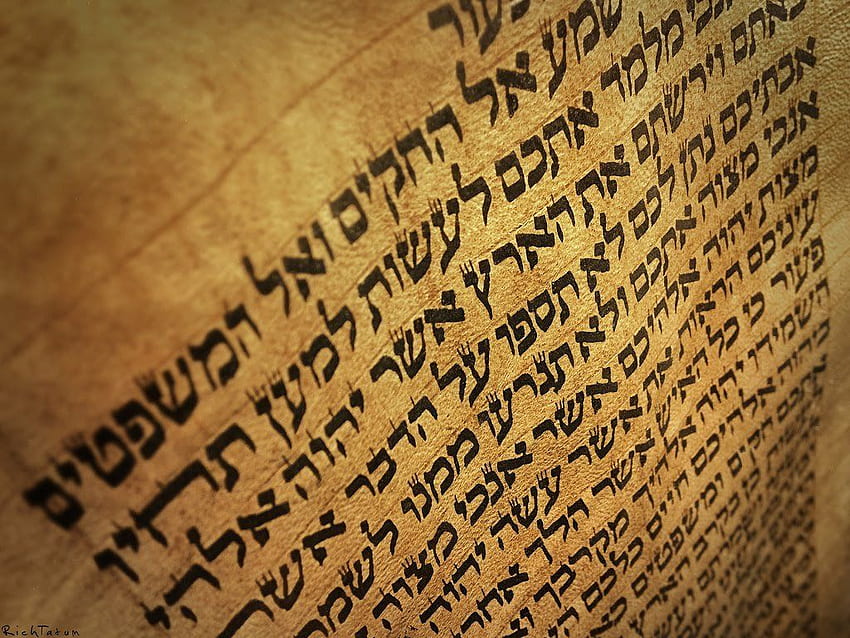 פעור
שמע אל החקים ואל המשפטים
מלמד אתכם לעשות למען תחיו
וירשתם את הארץ אשר יהוה אלהי
אבתיכם נתן לכם לא תספו על הדבר אשר
אנכי מצוה אתכם ולא תגרעו ממנו לשמר
מצות יהוה אלהיכם אשר אנכי מצוה
עיניכם הראות את אשר עשה יהוה
פעור כי כל האיש אשר הלך אחרי
השמידו יהוה אלהיך מקרבך
ביהוה אלהיכם חיים כלכם
אתכם חקים ומשפטים
כן בקרב הארץ
RichTatum